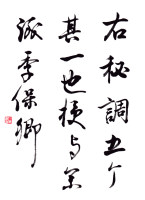 右秘調五个
其一也授与念
派季保卿